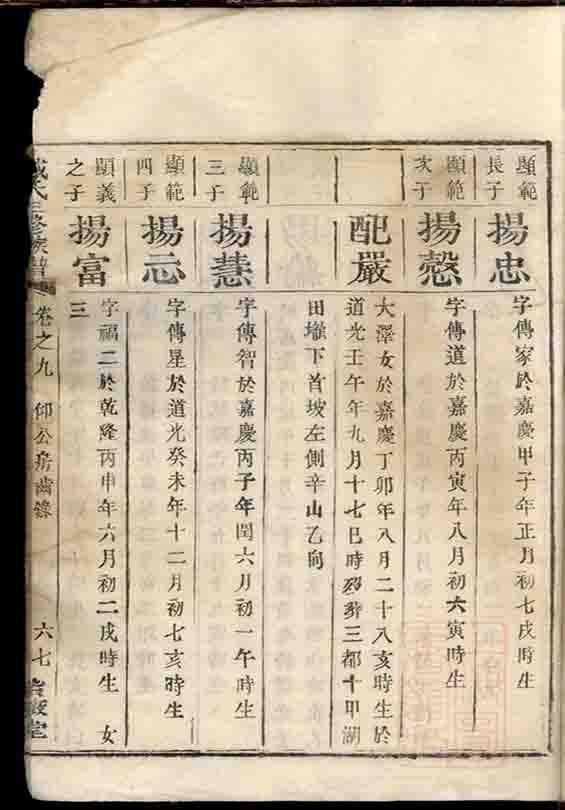 顯範
長子
揚忠
字傳家於嘉慶甲子年正月初七戌時生
顯範
次子
揚慤
字傳道於嘉慶丙寅年八月初六寅時生
配嚴
大澤女於嘉慶丁卯年八月二十八亥時生於
道光壬午年九月十七巳時歿葬三都十甲湖
田墈下首坡左側辛山乙向
顯範
三子
揚慧
字傳智於嘉慶丙子年閏六月初一午時生
顯範
四子
揚忈
字傳星於道光癸未年十二月初七亥時生
顯義
之子
揚富
字福二於乾隆丙申年六月初二戌時生 女
三
氏三修族譜
卷之九 仰公房齒錄
六七
堂